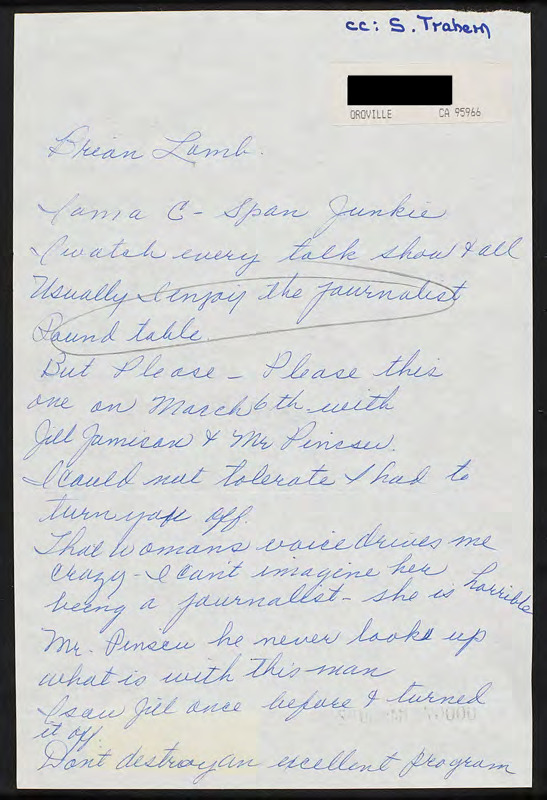 cc: S. Trahern
OROVILLE CA 95966
Brian Lamb.
I am a C-Span Junkie
I watch every talk show & all
Usually I enjoy the journalist
Round table.
But Please - Please this
one on March 6th with
Jill Jamison & Mr Pinsseu.
I could not tolerate I had to
turn you off.
That womans voice drives me
crazy - I can't imagine her
being a journalist - she is horrible
Mr. Pinseu he never looks up
what is with this man
I saw Jill once before & turned
it off.
Dont destroy an excellent program